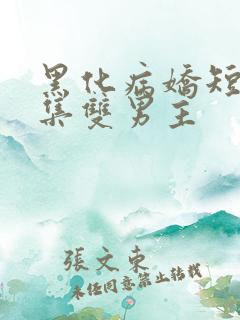 黑化病嬌短
集雙男主
張文東
未任同意禁止转载